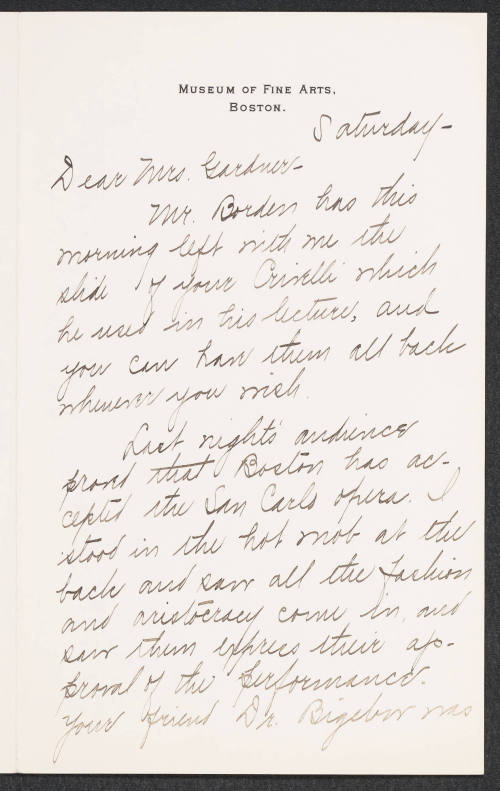 MUSEUM OF FINE ARTS,
BOSTON.
Saturday—
Dear Mrs. Gardner—
Mr. Borden has this
morning left with me the
slide of your Crivelli which
he used in his lecture, and
you can have them all back
whenever you wish.
Last night's audience
proved that Boston has ac-
cepted the San Carlo opera. I
stood in the hot mob at the
back and saw all the fashion
and aristocracy come in, and
saw them express their ap-
proval of the performance.
Your friend Dr. Bigelow was